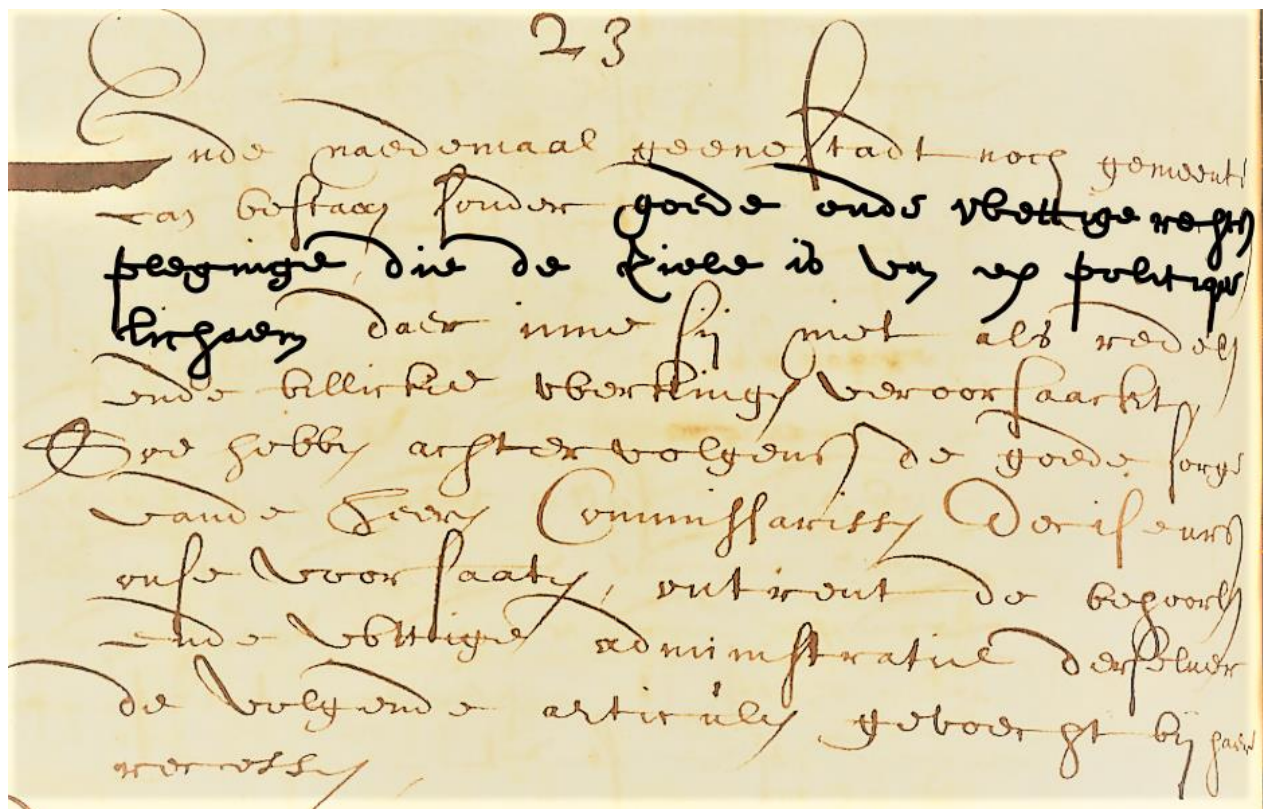 23
Ende naedemaal geene stadt noch gemeente
can bestaen sonder goede ende wettige rechts
pleginge die de Ziele is van een politiqe
lichaem daer inne sij niet als redelij
ende billickie werkingen veroorsaackt,
Soe hebben achtervolgens de goede sorge
vande Heeren Commissarissen Deciseurs
onse voorsaaten, ontrent de behoorl
ende wettige administratie derselver
de volgende articulen gevoecht bij haer
recessen,